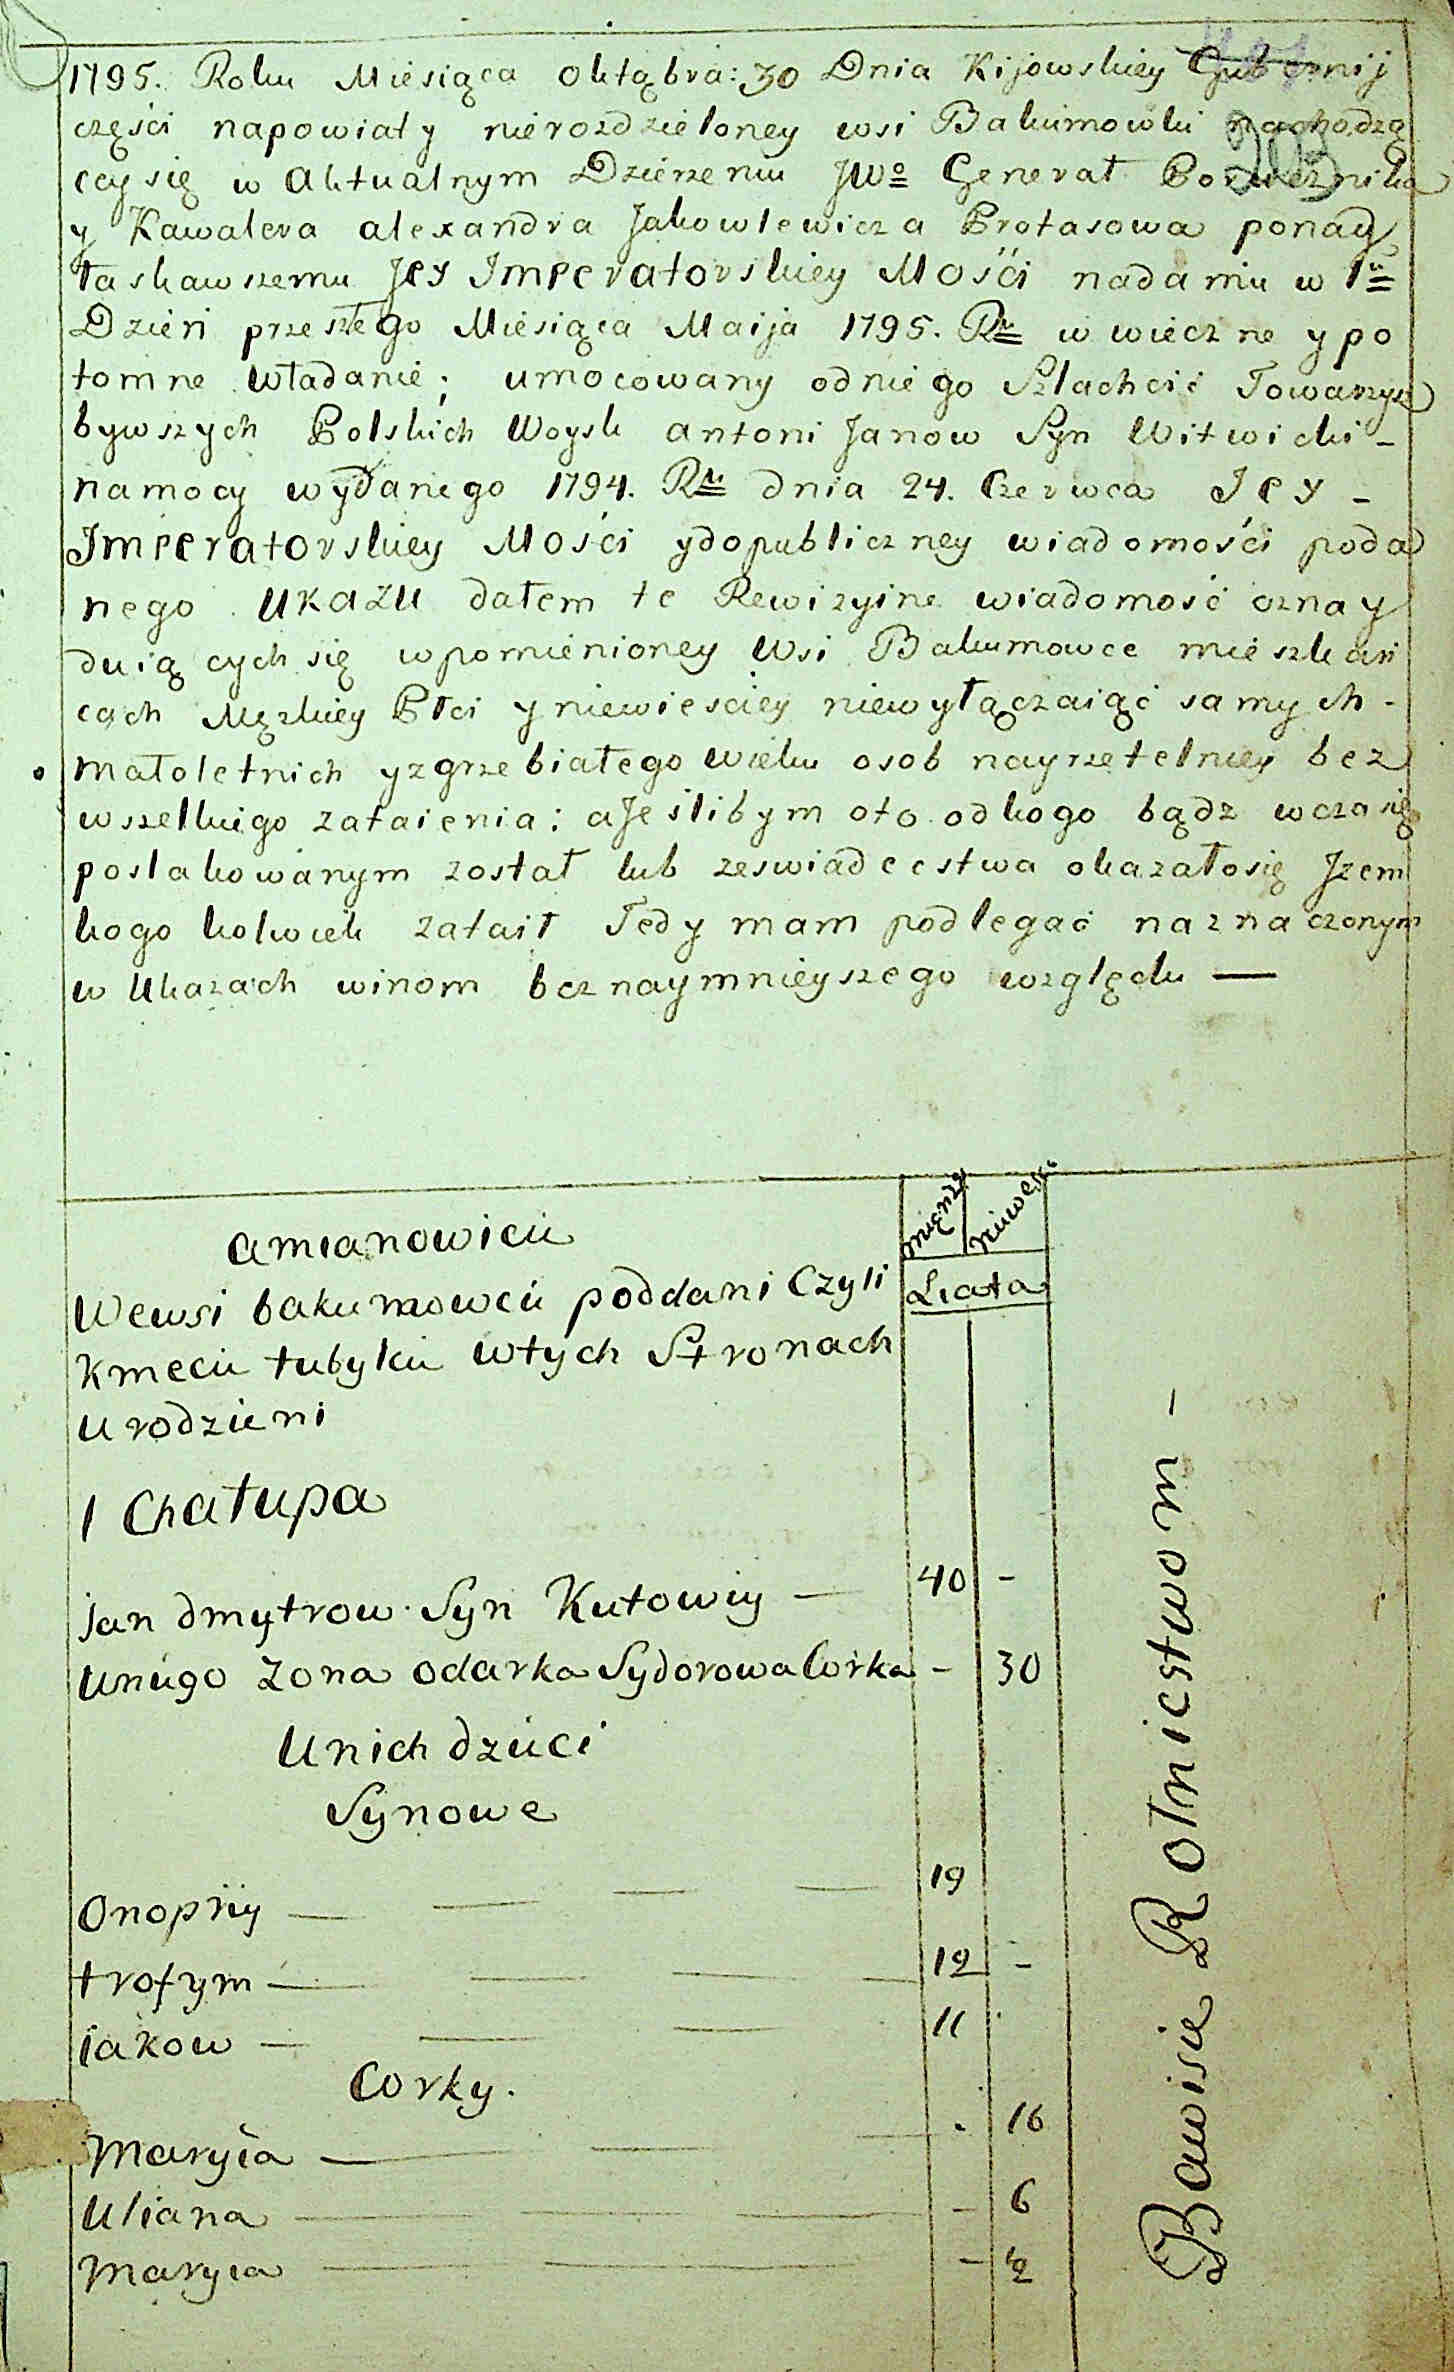 1795. Roku Miesiąca Oktąbra: 30 Dnia Kijowskiey Gubernij
203
częśći napowiaty nierozdzieloney wsi Bakumowki nachodzą
cey się w Aktualnym Dzierzeniu JWo Generał Porucznika
y Kawalera alexandra Jakowlewicza Protasowa ponay
łaskawszemu Jey Imperatorskiey Mośći nadaniu w 1m
Dzień przeszłego Miesiąca Maija 1795. Ru w wieczne y po
tomne władanie; umocowany od niego Szlachcić Towarzysz
bywszych Polskich Woysk antoni Janow Syn Witwicki -
na mocy wydanego 1794. Ru dnia 24. Czerwca Jey -
Imperatorskiey Mośći y dopubliczney wiadomośći poda
nego Ukazu dałem te Rewizyine wiadomość oznay
duią cych się wpomienioney Wsi Bakumowce mieszkań
cach Męzkiey Płci y niewiesciey niewyłączaiąć samych -
małoletnich y zgrzebiałego wieku osob nayrzetelniey bez
wszelkiego zataienia: a Jeślibym oto od kogo bądz wczasię
poslakowanym został lub ze swiadecstwa okazałosię Jzem
kogo kolwiek zataił Tedy mam podlegać naznaczonym
w Ukazach winom bez naymnieyszego względu —
amianowicie
mięnzk niwesk
Wewsi bakumowcie poddani Czyli
Liata
kmecie tubylcie wtych Stronach
urodzieni
1 Chałupa
jan dmytrow Syn Kutowiy — 40 -
unięgo zona odarka Sydorowa Corka - 30
Unich dzieci
Synowe
Onopriy — — — — 19
trofym — — — — 12 -
iakow — — — 11
Corky.
Maryia — — — . 16
Uliana — — — - 6
Maryia — — - ½
Bawisie Rolnicstwom -